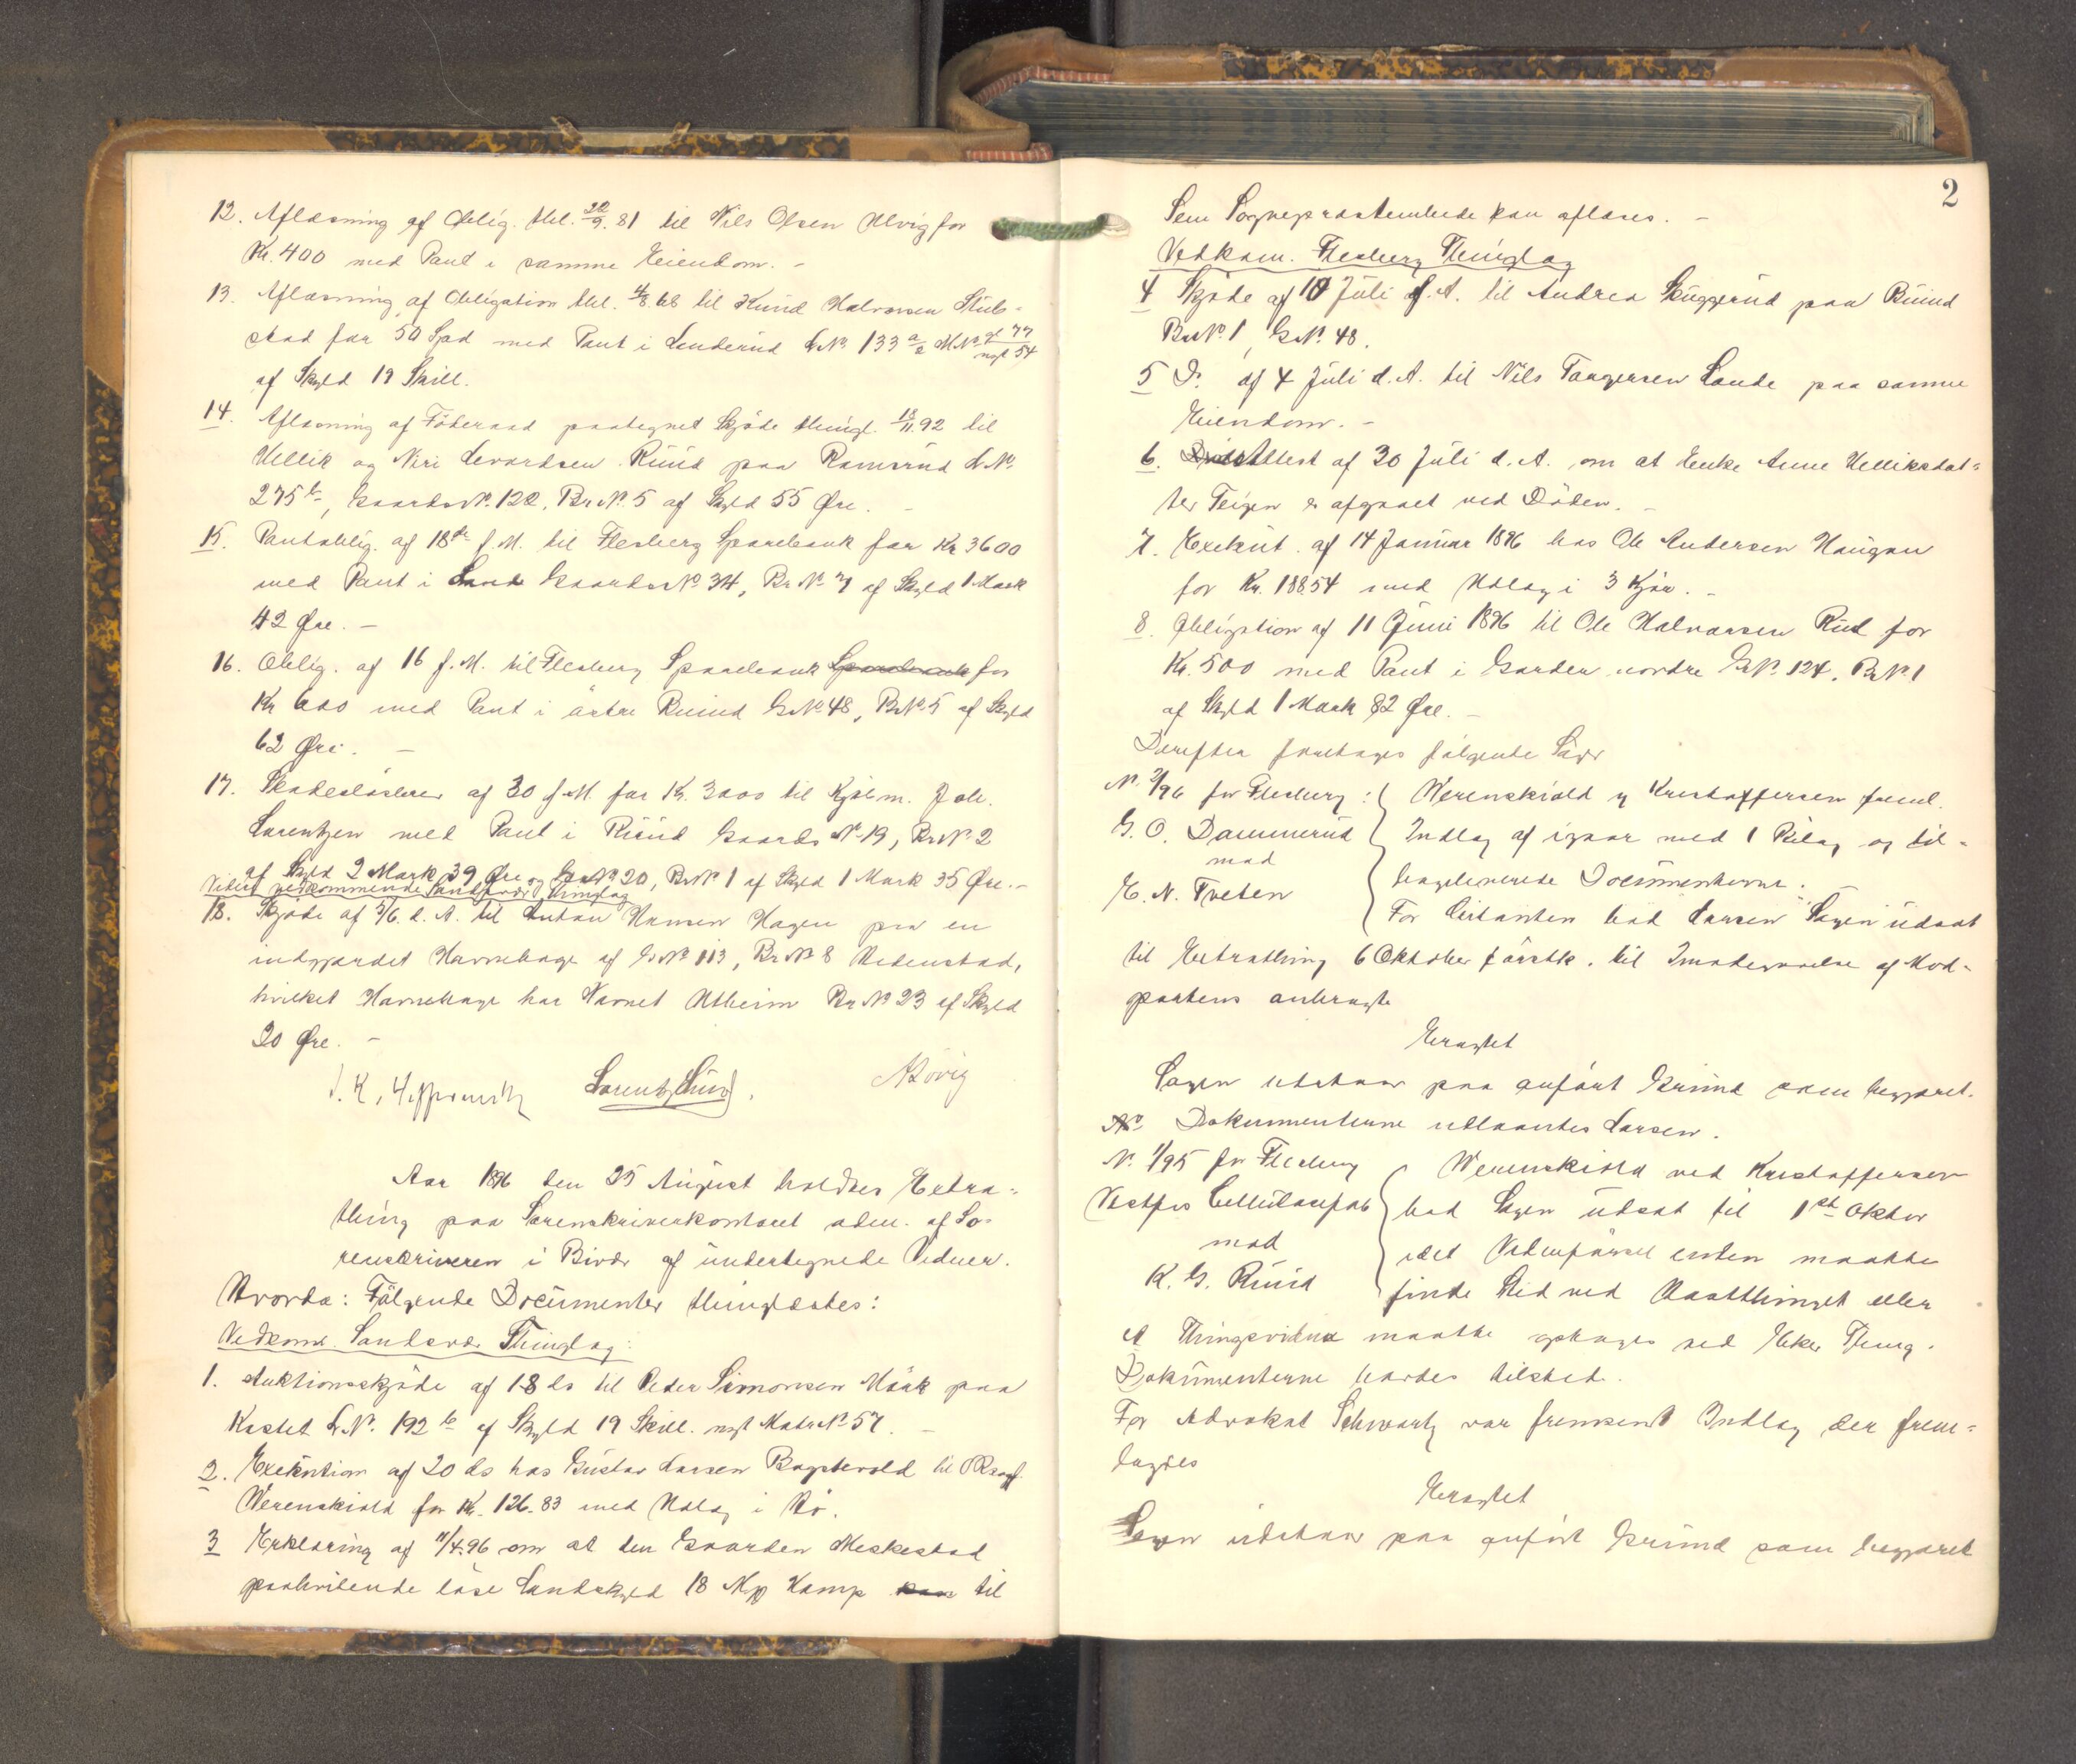 12. Aflæsning af Oblig. thl. 20/9. 81 til Nils Olsen Ulvig for
Kr. 400 med Pant i samme Eiendom. -
13. Aflæsning af Obligation thl. 4/8 68 til Knud Halvorsen Stub=
stad for 50 Spd med Pant i Lenderud LNo 133 a/2 MNo gl 77
nyt 54
af Skyld 19 Skill.
14. Aflæsning af Föderaad paategnet Skjöde thingl. 18/11. 92 til
Hellik og Niri Levordsen Ruud paa Ramsrud LNo
275 b, GaardsNo. 122, BrNo. 5 af Skyld 55 Øre. -
15. Pantoblig. af 18de f. M. til Flesberg Sparebank for Kr 3600
med Pant i Lande GaardsNo 34, BrNo 7 af Skyld 1 Mark
42 Øre. -
16. Oblig. af 16 f. M. til Flesberg Sparebank Sparebank for
Kr 600 med Pant i östre Ruud GNo 48, BrNo 5 af Skyld
62 Øre. -
17. Skadeslösbrev af 30 f. M. for Kr. 3000 til Kjöbm. Joh.
Lorentzen med Pant i Ruud Gaards No 19, BrNo 2
af Skyld 2 Mark 39 Øre og GNo 20, BrNo 1 af Skyld 1 Mark 35 Øre. -
Videre vedkommende Sandsvær Thinglag
18. Skjöde af 5/6. d. A. til Anton Hansen Hagen paa en
indgjærdet Havnehage af GNo 113, BrNo 8 Hedenstad,
hvilket Havnehage har Navnet Utheim BrNo 23 af Skyld
20 Øre. -
Aar 1896 den 25 August holdtes Extra=
thing paa Sorenskriverkontoret adm. af So=
renskriveren i Bivær af undertegnede Vidner.
Hvorda: Fölgende Documenter thinglæstes:
Vedkom. Sandsvær Thinglag:
1. Auktionsskjöde af 18 ds til Peder Simonsen Mörk paa
Kastet LNo. 192 b af Skyld 19 Skill. nyt MatrNo 57. -
2. Exekution af 20 ds hos Gustav Larsen Bagstevold til ORsagf.
Werenskiold for Kr. 126.83 med Udlæg i Hö.
3 Erklæring af 11/4.96 om at den Gaarden Meskestad
paahvilende löse Landskyld 18 Mkp Kamp til
2
Sem Sognepræstembede kan aflæses. -
Vedkom. Flesberg Thinglag
4 Skjöde af 10 Juli d. A. til Andrea Skuggerud paa Ruud
BrNo. 1, GNo. 48.
5 Do. af 4 Juli d. A. til Nils Torgersen Lande paa samme
Eiendom. -
6. Attest af 30 Juli d. A. om at Enke Anne Helliksdat=
ter Teigen er afgaaet ved Döden. -
7. Exekut. af 14 Januar 1896 hos Ole Andersen Haugan
for Kr. 188.54 med Udlæg i 3 Kjör. -
8. Obligation af 11 Juni 1896 til Ole Halvorsen Rud for
Kr. 500 med Pant i Garder nordre GNo. 124, BrNo 1
af Skyld 1 Mark 82 Øre. -
Derefter foretoges fölgende Sager
No. 2/96 for Flesberg:
G. O. Dammerud
mod
E. N. Tveten
Werenskiold v Kristoffersen freml.
Indlæg af igaar med 1 Bilag og til=
bageleverede Documenterne.
For Citanten bad Larsen Sagen udsat
til Extrathing 6 Oktober förstk. til Imödegaaelse af Mod=
partens anbragte
Eragtet
Sagen udstaar paa anfört Grund som begjæret.
No Dokumenterne udlaantes Larsen.
No. 1/95 for Flesberg
Vestfos Cellulosefab
mod
K. G. Ruud
Werenskiold ved Kristoffersen
bad Sagen udsat til 1st Oktbr
idet Vidneförsel enten maatte
finde Sted ved Hösthinget eller
et Thingsvidne maatte optages ved Eker Thing.
Dokumenterne havdes tilstede.
For Advokat Schwartz var fremsendt Indlæg der frem=
lagdes
Eragtet
Sagen udstaar paa anfört Grund som begjæret